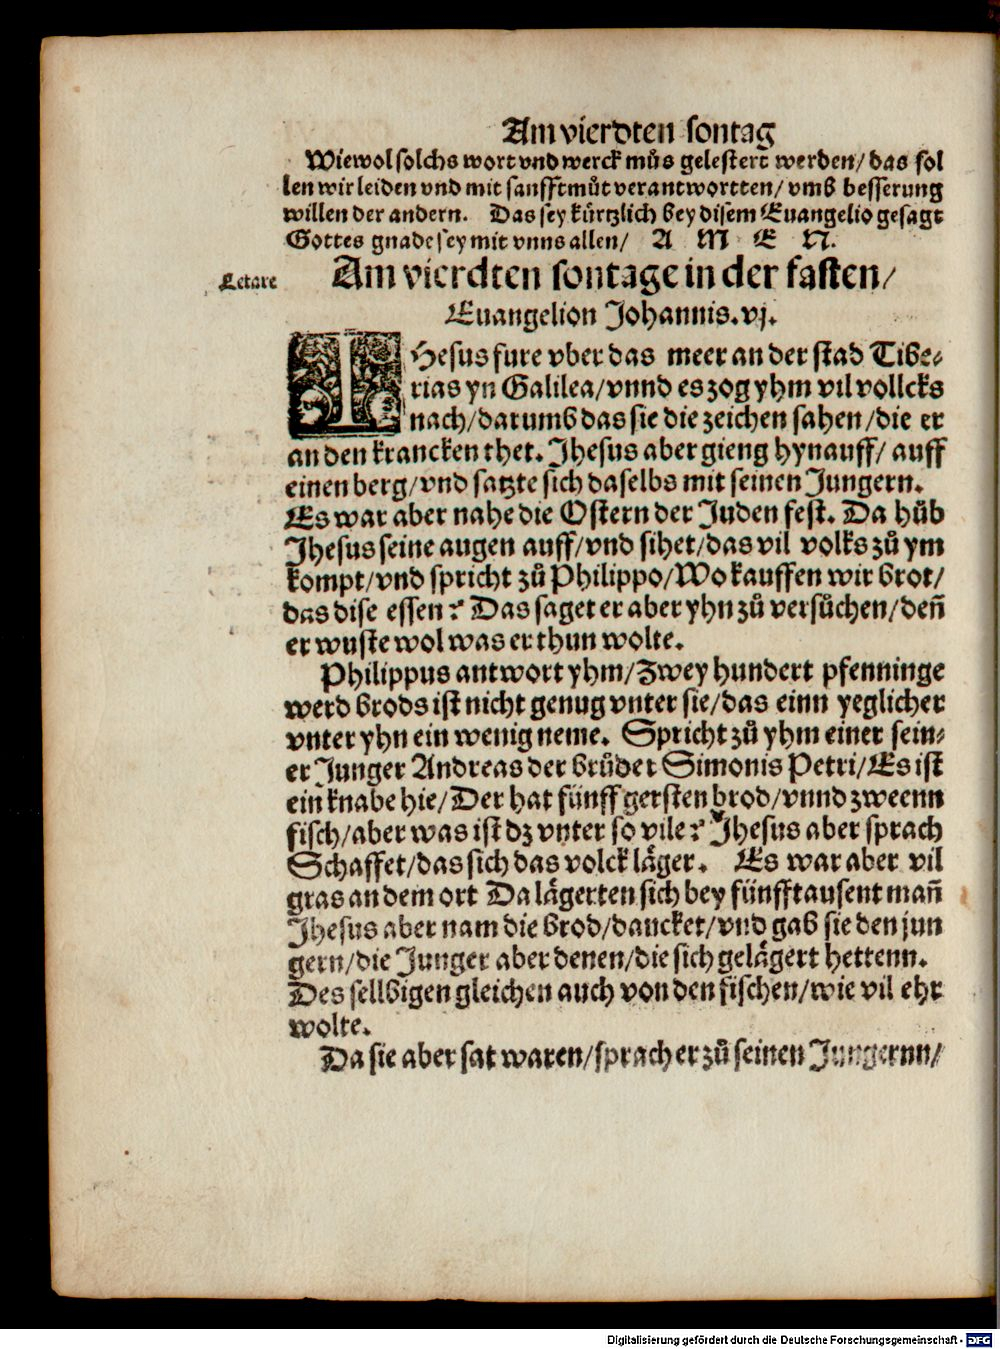 Am vierdten sontag
Wiewol solchs wort vnd werck můs gelestert werden/ das sol
len wir leiden vnd mit sanfftmůt verantwortten/ vmb besserung
willen der andern. Das sey kürtzlich bey disem Euangelio gesagt
Gottes gnade sey mit vnns allen/ A M E N.
Letare
Am vierdten sontage in der fasten/
Euangelion Johannis. vj.
IHesus fure vber das meer an der stad Tibe-
rias yn Galilea/ vnnd es zog yhm vil vollcks
nach/ darumb das sie die zeichen sahen/ die er
an den krancken thet. Jhesus aber gieng hynauff/ auff
einen berg/ vnd satzte sich daselbs mit seinen Jungern.
Es war aber nahe die Ostern der Juden fest. Da hůb
Jhesus seine augen auff/ vnd sihet/ das vil volks zů ym
kompt/ vnd spricht zů Philippo/ Wo kauffen wir brot/
das dise essen? Das saget er aber yhn zů versůchen/ deñ
er wuste wol was er thun wolte.
Philippus antwort yhm/ Zwey hundert pfenninge
werd brods ist nicht genug vnter sie/ das einn yeglicher
vnter yhn ein wenig neme. Spricht zů yhm einer sein-
er Junger Andreas der brůder Simonis Petri/ Es ist
ein knabe hie/ Der hat fünff gersten brod/ vnnd zweenn
fisch/ aber was ist dz vnter so vile? Jhesus aber sprach
Schaffet/ das sich das volck läger. Es war aber vil
gras an dem ort Da lägerten sich bey fünfftausent mañ
Jhesus aber nam die brod/ dancket/ vnd gab sie den jun
gern/ die Junger aber denen/ die sich gelägert hettenn.
Des sellbigen gleichen auch von den fischen/ wie vil ehr
wolte.
Da sie aber sat waren/ sprach er zů seinen Jungernn/
Digitalisierung gefördert durch die Deutsche Forschungsgemeinschaft - DFG